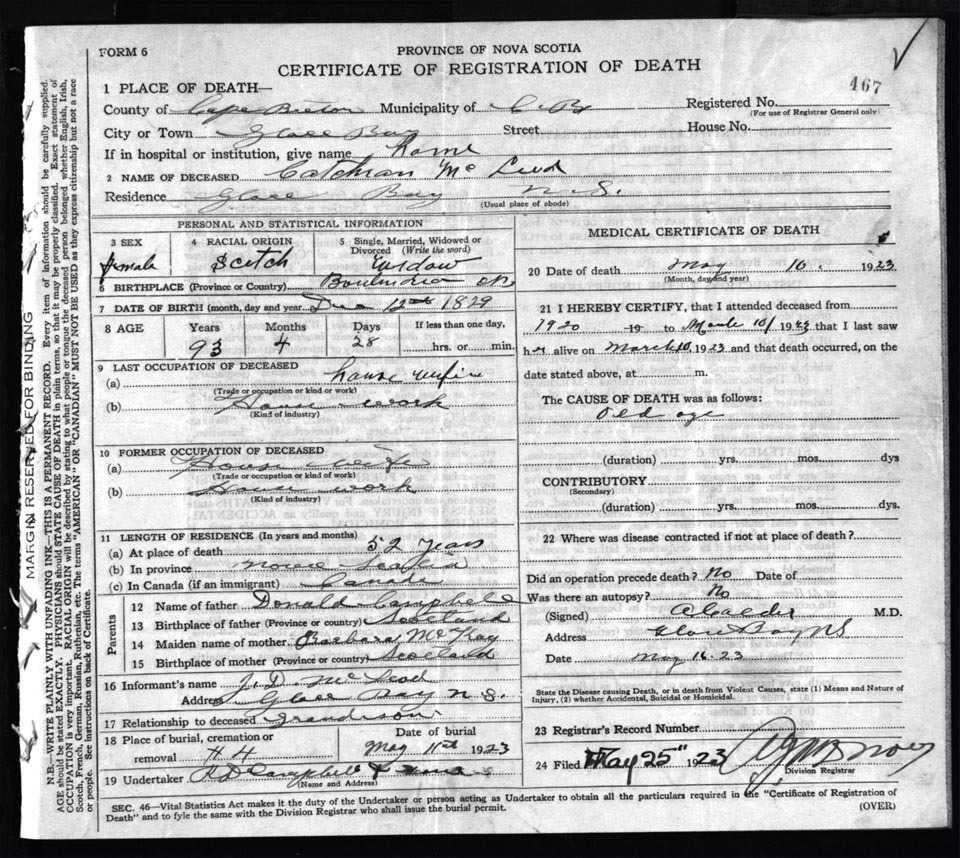 FORM 6
PROVINCE OF NOVA SCOTIA
CERTIFICATE OF REGISTRATION OF DEATH
467
1 PLACE OF DEATH—
County of Cape Breton Municipality of C. B.
Registered No.
(For use of Registrar General only)
City or Town Glace Bay Street
House No.
If in hospital or institution, give name home
2 NAME OF DECEASED Mc Leod
Residence Glace Bay N. S.
(Usual place of abode)
PERSONAL AND STATISTICAL INFORMATION
3 SEX
female
4 RACIAL ORIGIN
Scotch
5 Single, Married, Widowed or Divorced (Write the word)
widow
6 BIRTHPLACE (Province or Country)
7 DATE OF BIRTH (month, day and year) Dec 12th 1829
8 AGE
Years Months Days If less than one day,
93 4 28 hrs. or min.
9 LAST OCCUPATION OF DECEASED
(a) house wife
(Trade or occupation or kind or work)
(b) House work
(Kind of industry)
10 FORMER OCCUPATION OF DECEASED
(a) House
(Trade or occupation or kind or work)
(b) House work
(Kind of industry)
11 LENGTH OF RESIDENCE (In years and months)
(a) At place of death 52 years
(b) In province Nova Scotia
(c) In Canada (if an immigrant) Canada
Parents
12 Name of father Donald Campbell
13 Birthplace of father (Province or country) Scotland
14 Maiden name of mother Barbara McKay
15 Birthplace of mother (Province or country) Scotland
16 Informant's name J. D. McLeod
Address Glace Bay N S.
17 Relationship to deceased grandson
18 Place of burial, cremation or removal # 4
Date of burial
May 11th 1923
19 Undertaker A D Campbell &
(Name and Address)
MEDICAL CERTIFICATE OF DEATH
20 Date of death May 10. 1923
(Month, day and year)
21 I HEREBY CERTIFY, that I attended deceased from
1920 19 to March 10/ 1923 that I last saw
her alive on March 10, 1923 and that death occurred, on the
date stated above, at m.
The CAUSE OF DEATH was as follows:
old age
(duration) yrs. mos. dys
CONTRIBUTORY
(Secondary)
(duration) yrs. mos. dys.
22 Where was disease contracted if not at place of death?
Did an operation precede death? No Date of
Was there an autopsy? No
(Signed) A Calder M.D.
Address Glace Bay NS
Date May 16. 23
State the Disease causing Death, or in death from Violent Causes, state (1) Means and Nature of
Injury, (2) whether Accidental, Suicidal or Homicidal.
23 Registrar's Record Number
24 Filed May 25" 1923
Division Registrar
SEC. 46—Vital Statistics Act makes it the duty of the Undertaker or person acting as Undertaker to obtain all the particulars required in the "Certificate of Registration of
Death" and to fyle the same with the Division Registrar who shall issue the burial permit.
(OVER)
MARGIN RESERVED FOR BINDING
N.B.—WRITE PLAINLY WITH UNFADING INK—THIS IS A PERMANENT RECORD. Every item of information should be carefully supplied.
AGE should be stated EXACTLY. PHYSICIANS should STATE CAUSE OF DEATH in plain terms, so that it may be properly classified. Exact statement of
OCCUPATION is very important. RACIAL ORIGIN will be described by stating to what people or tongue the deceased person belonged whether English, Irish,
Scotch, French, German, Russian, Ruthenian, etc. The terms "AMERICAN" OR "CANADIAN" MUST NOT BE USED as they express citizenship but not a race
or people. See instructions on back of Certificate.